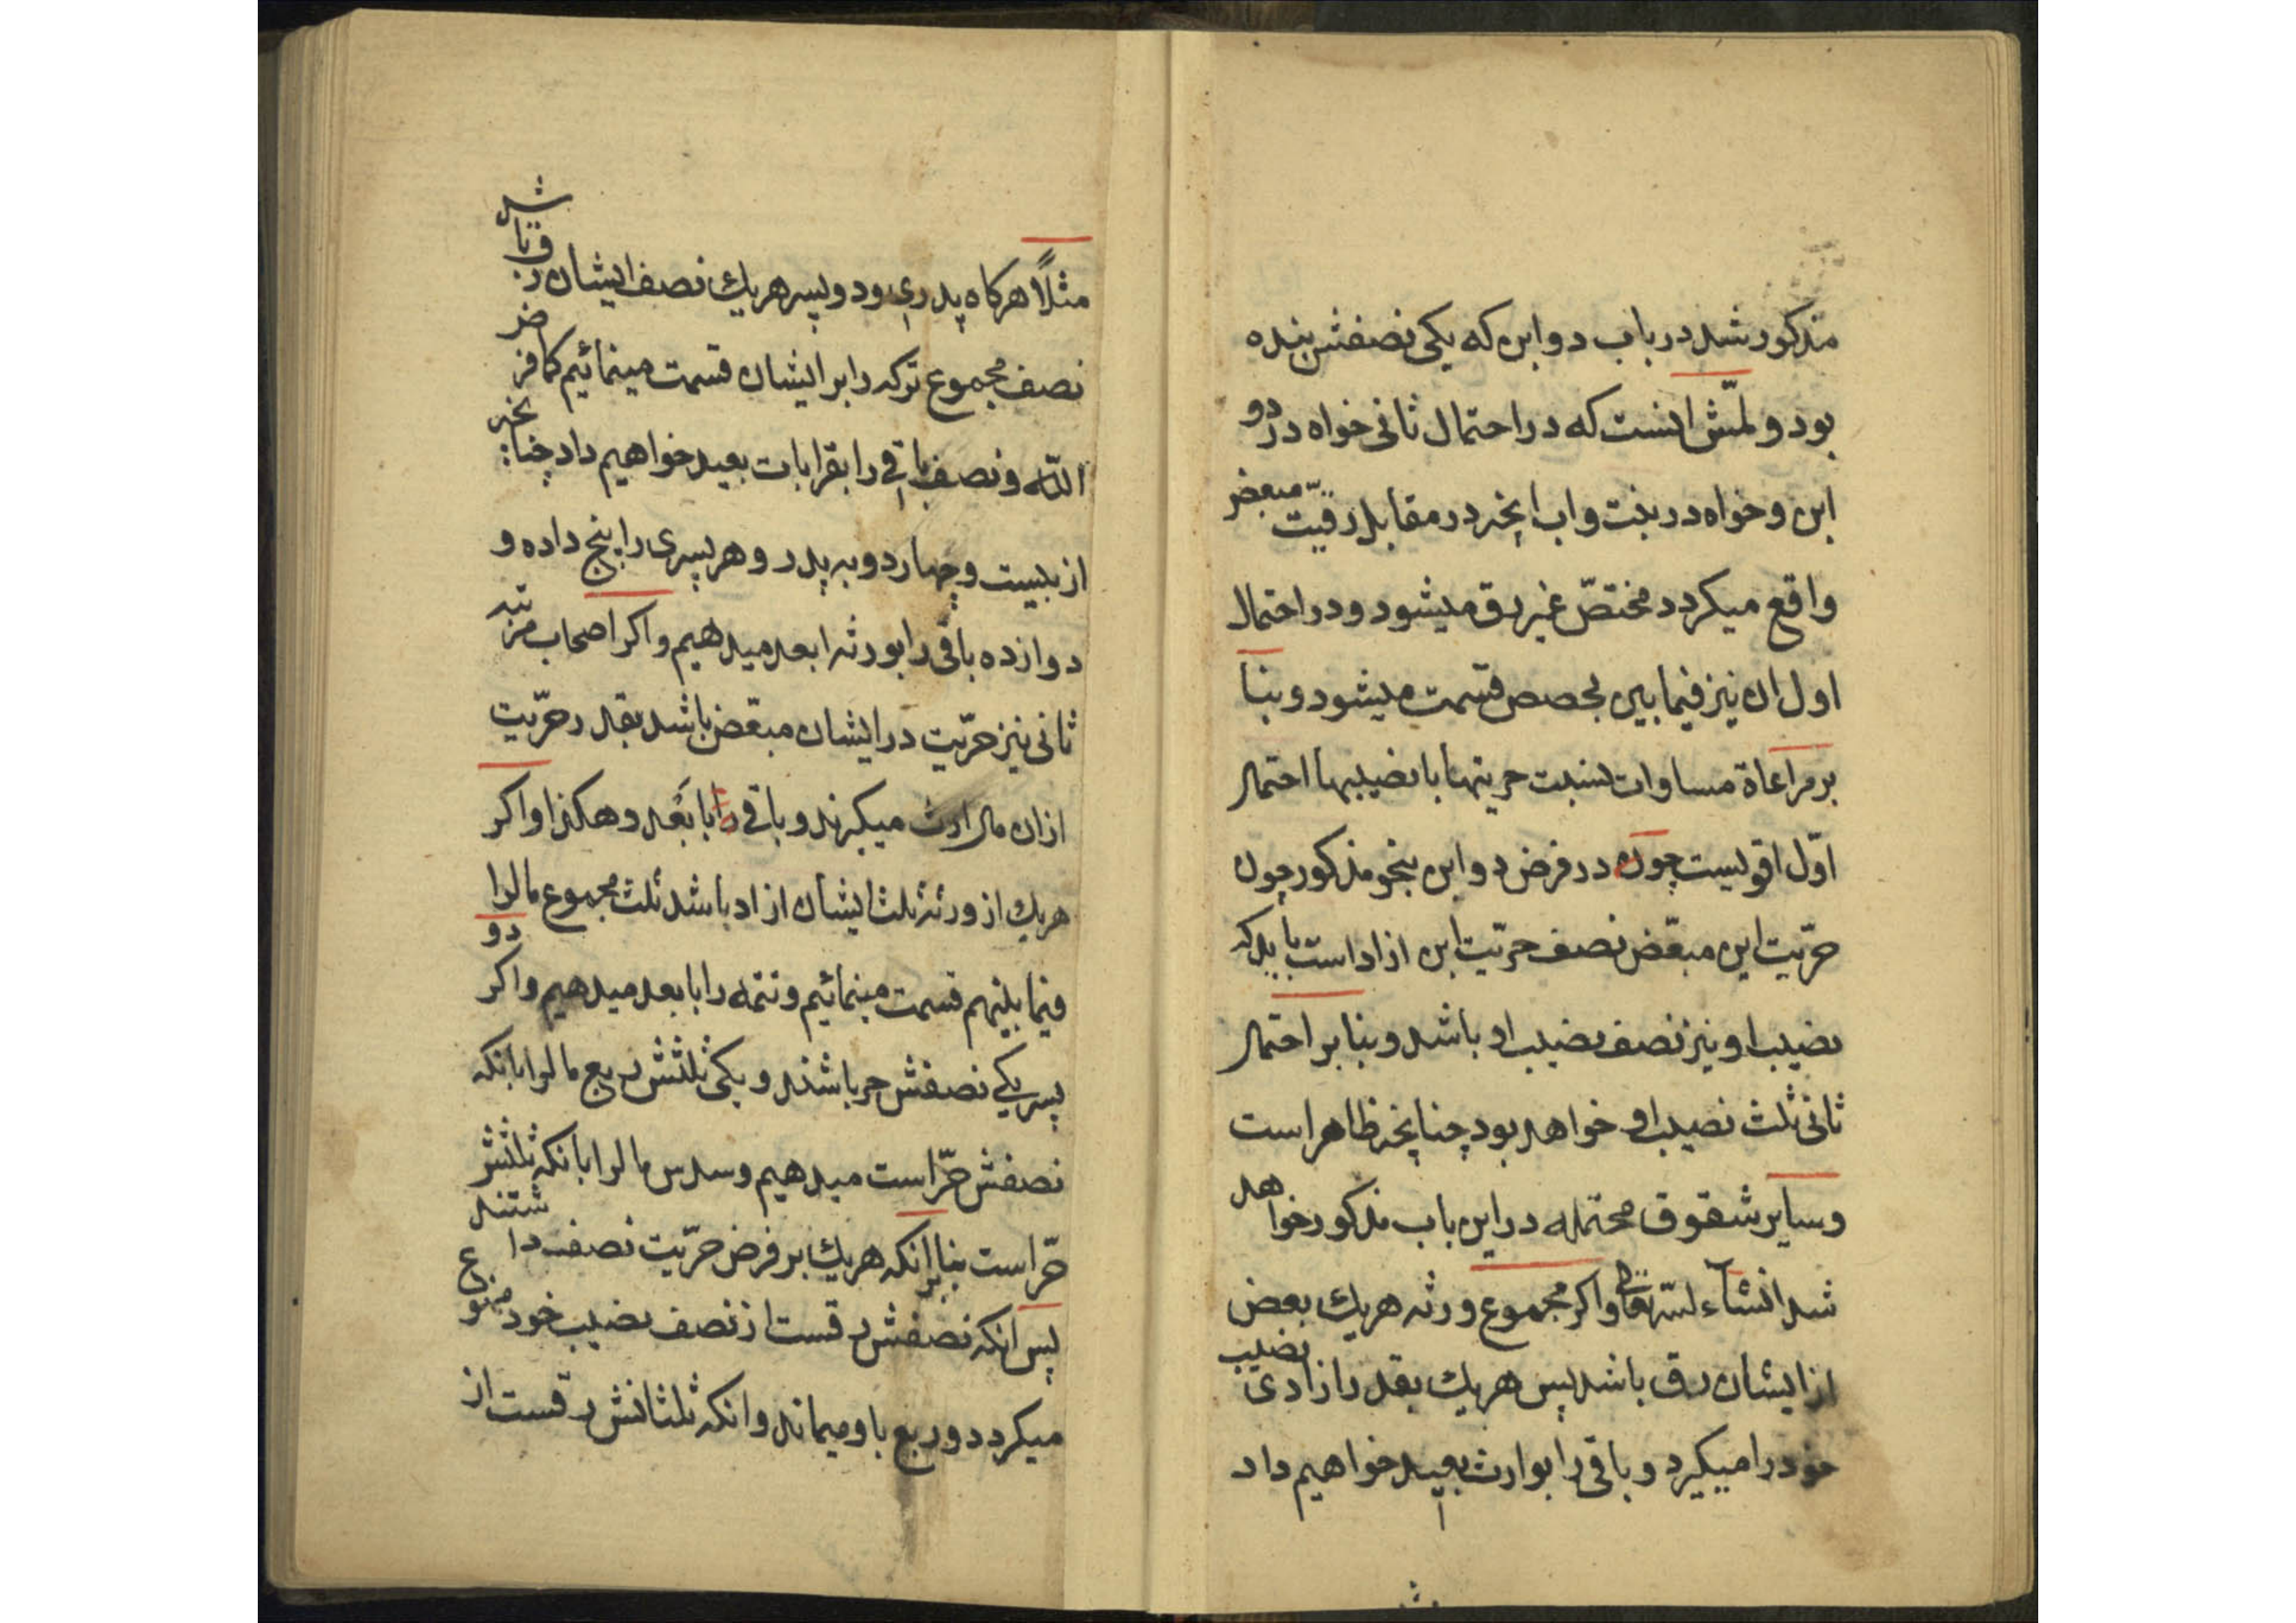 مذکور شد در باب دو ابن که یکی نصفش بنده
بود و لمّش اینست که در احتمال ثانی خواه در دو
ابن و خواه در بنت و اب انچه در مقابل رقیت مبعض
واقع میکردد مختصّ غیر رق میشود و در احتمال
اول ان نیز فیما بین بحصص قسمت میشود و بنا
بر مراعاة مساوات نسبت حریتها با نصیبها احتمال
اوّل اقویست چون در فرض دو ابن بنحو مذکور چون
حرّیت این مبعّض نصف حرّیت ابن ازاد است باید که
نصیب او نیز نصف نصیب او باشد و بنا بر احتمال
ثانی ثلث نصیب او خواهد بود چنانچه ظاهر است
و سایر شقوق محتمله در این باب مذکور خواهد
شد انشآء لله تعالی و اکر مجموع ورثه هریك بعض
از ایشان رق باشد پس هریك بقدر ازادی نصیب
خود را میکیرد و باقی را بوارث بعید خواهیم داد
مثلاً هرکاه پدری و دو پسر هریك نصف ایشان رق باشد
نصف مجموع ترکه را بر ایشان قسمت مینمائیم کما فرض
اللّه و نصف باقی را بقرابات بعید خواهیم داد چنانچه
از بیست و چهار دو به پدر و هر پسری را پنج داده و
دوازده باقی را بورثه ابعد میدهیم و اکر اصحاب مرتبه
ثانی نیز حرّیت در ایشان مبعّض باشد بقدر حرّیت
ازان مال ارث میکیرند و باقی را با بَعد و هکذا و اکر
هریك از ورثه ثلث ایشان ازاد باشد ثلث مجموع مالرا
فیما بینهم قسمت مینمائیم و تتمه را با بعد میدهیم و اکر دو
پسر یکی نصفش حر باشند و یکی ثلثش ربع مالرا بانکه
نصفش حرّ است میدهیم و سدس مالرا بانکه ثلثش
حرّ است بنا بر انکه هریك بر فرض حرّیت نصف داشتند
پس انکه نصفش رقست از نصف نصیب خود ممنوع
میکردد و ربع باو میماند و انکه ثلثانش رقست از